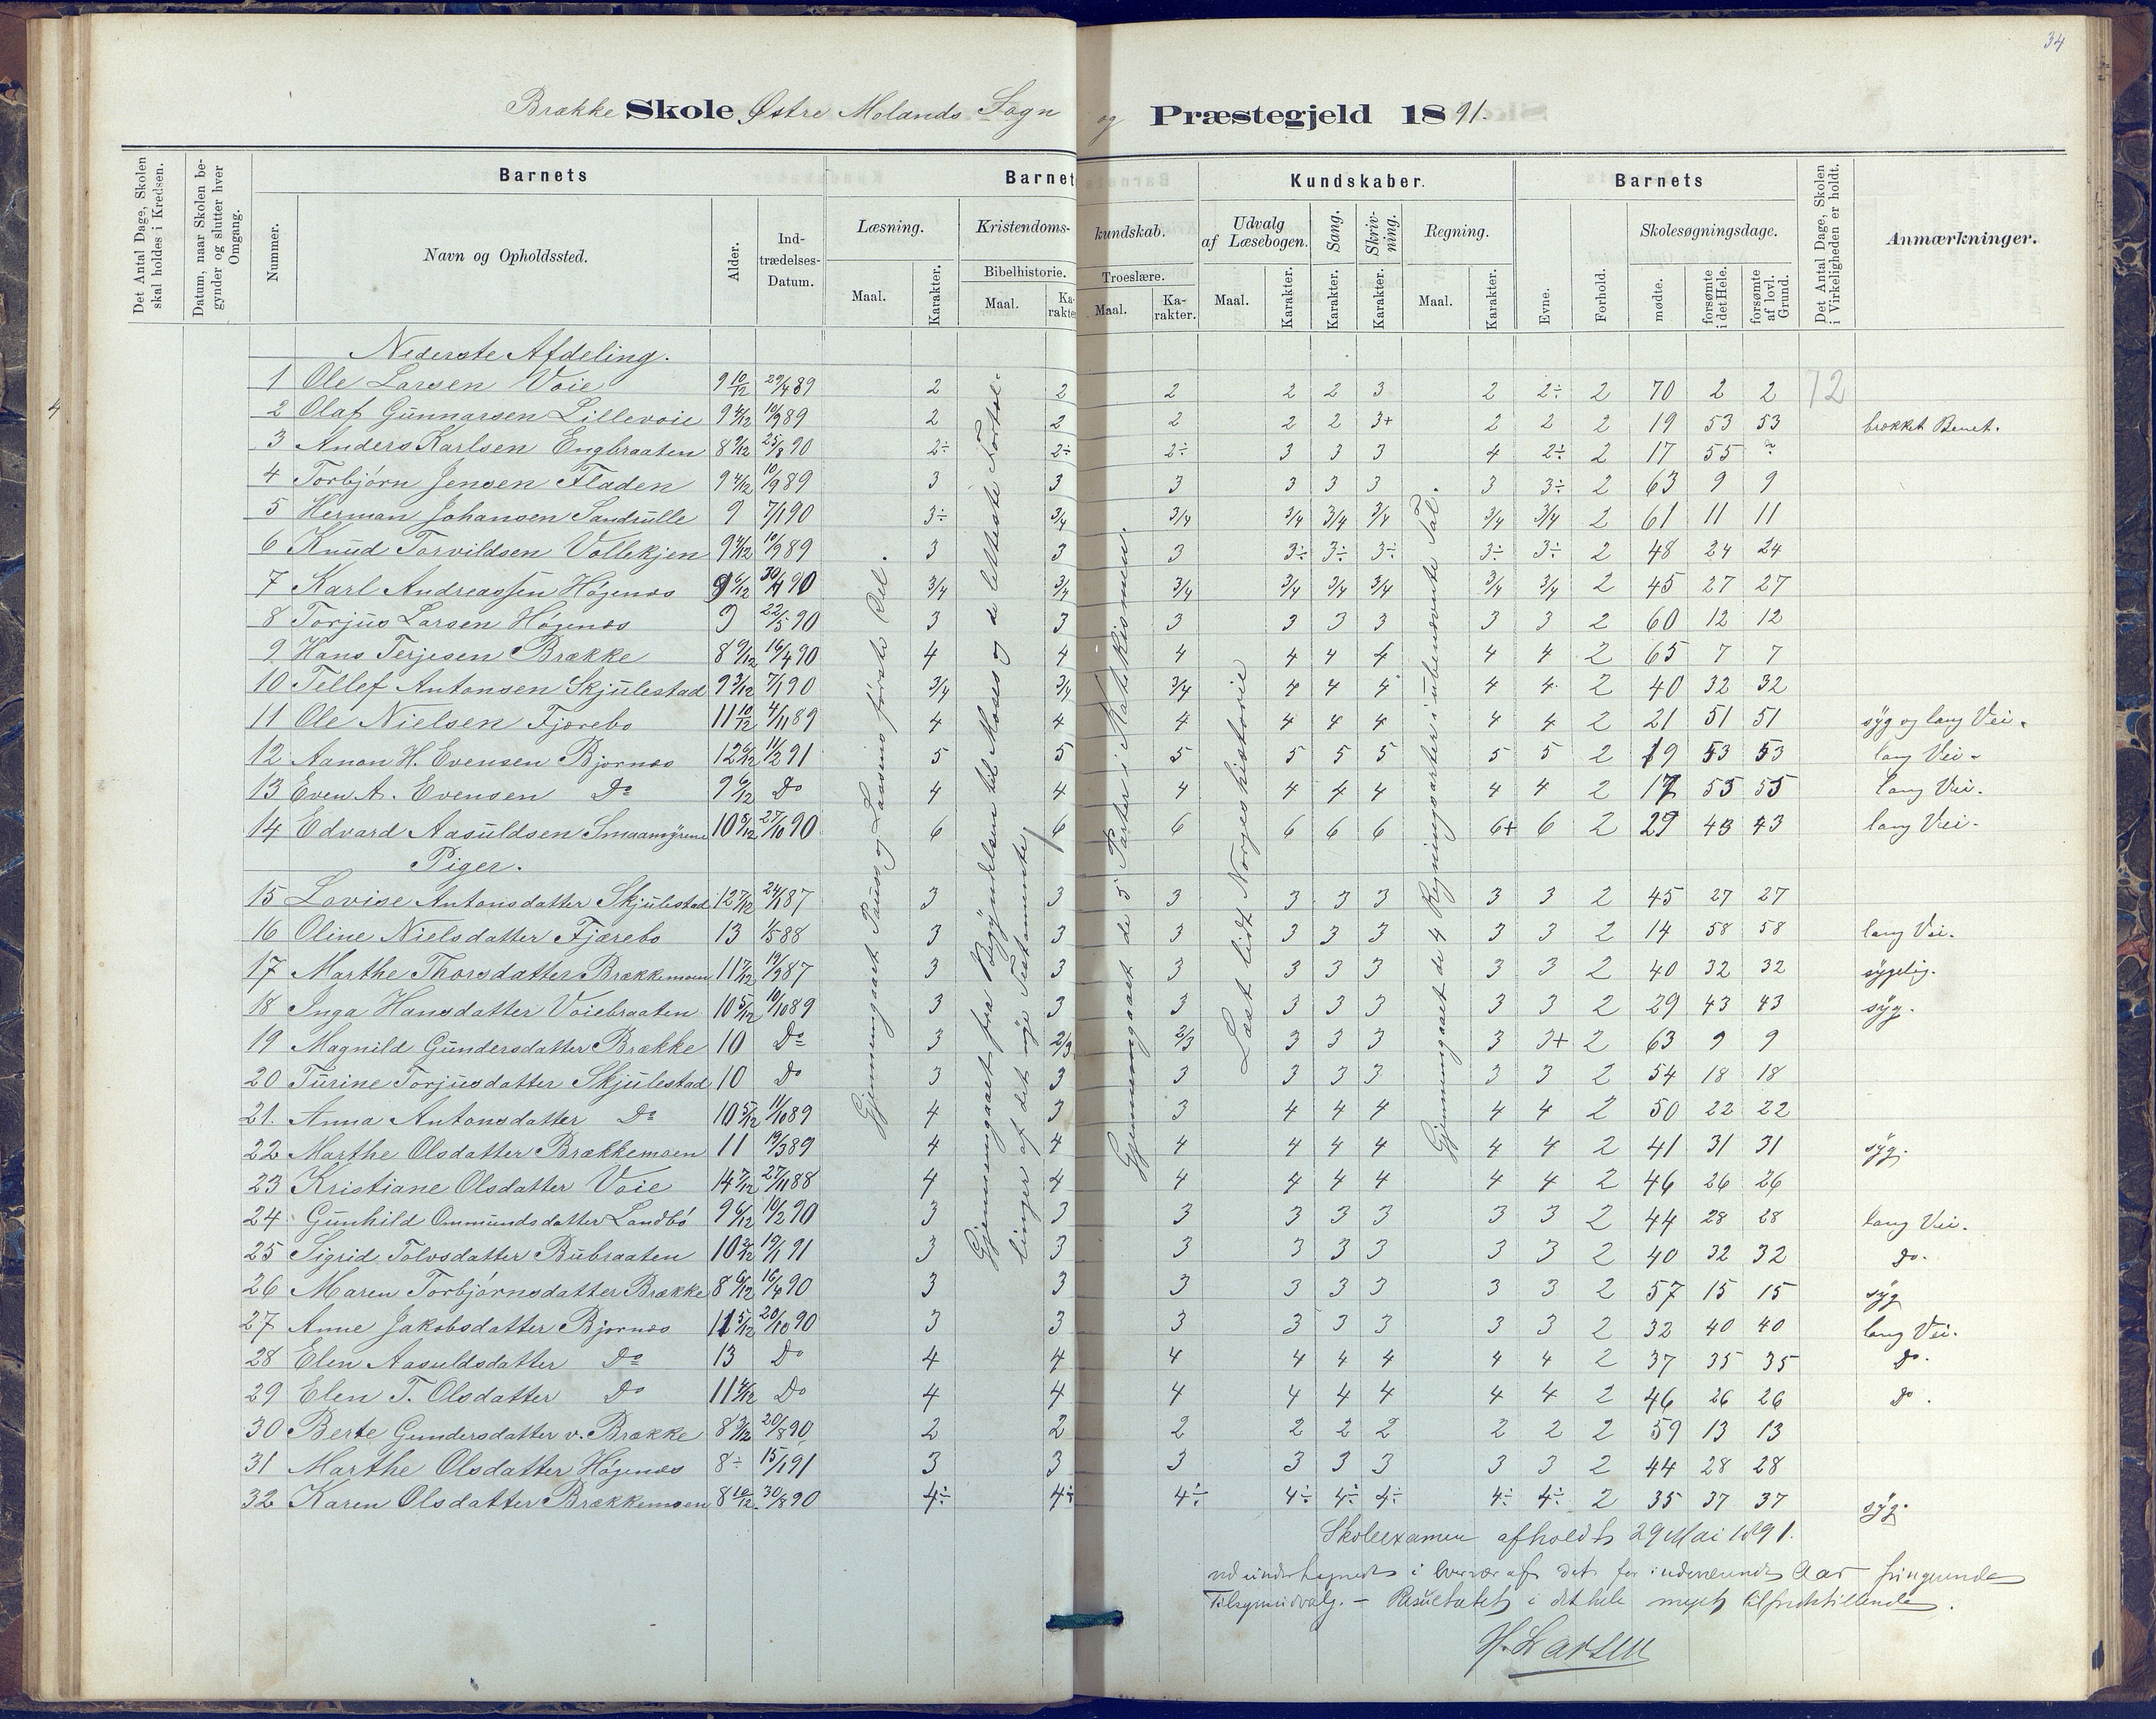 34
4
Brække Skole Østre Molands Sogn og Præstegjeld 1891.
Det Antal Dage, Skolen skal holdes i Kredsen.
Datum, naar Skolen begynder og slutter hver Omgang.
Barnets
Nummer.
Navn og Opholdssted.
Alder.
Ind-trædelses-Datum.
Barnets Kundskaber.
Læsning.
Maal.
Karakter.
Kristendoms-kundskab.
Bibelhistorie.
Maal.
Karakter
Troeslære.
Maal.
Karakter.
Udvalg af Læsebogen.
Maal.
Karakter.
Sang.
Karakter.
Skrivning.
Karakter.
Regning.
Maal.
Karakter.
Barnets
Evne.
Forhold.
Skolesøgningsdage.
mødte.
forsømte i det Hele.
forsømte af lovl. Grund.
Det Antal Dage, Skolen i Virkeligheden er holdt.
Anmærkninger.
Nederste Afdeling.
1 Ole Larsen Voie 9 10/12 29/4 89 2 2 2 2 2 3 2 2÷ 2 70 2 2 72
2 Olaf Gunnarsen Lillevoie 9 4/12 10/9 89 2 2 2 2 2 3+ 2 2 2 19 53 53 brækket Benet.
3 Anders Karlsen Engbraaten 8 9/12 25/8 90 2÷ 2÷ 2÷ 3 3 3 4 2÷ 2 17 55
4 Torbjørn Jensen Fladen 9 4/12 10/9 89 3 3 3 3 3 3 3 3÷ 2 63 9 9
5 Herman Johansen Sandrulle 9 7/1 90 3÷ 3/4 3/4 3/4 3/4 3/4 3/4 3/4 2 61 11 11
6 Knud Torvildsen Vollekjen 9 4/12 10/9 89 3 3 3 3÷ 3÷ 3÷ 3÷ 3÷ 2 48 24 24
7 Karl Andreassen Høgenæs 9 6/12 30/4 90 3/4 3/4 3/4 3/4 3/4 3/4 3/4 3/4 2 45 27 27
8 Torjus Larsen Høgenæs 9 22/5 90 3 3 3 3 3 3 3 3 2 60 12 12
9 Hans Terjesen Brække 8 9/12 16/4 90 4 4 4 4 4 4 4 4 2 65 7 7
10 Tellef Antonsen Skjulestad 9 3/12 7/1 90 3/4 3/4 3/4 4 4 4 4 4 2 40 32 32
11 Ole Nielsen Fjærebo 11 10/12 4/11 89 4 4 4 4 4 4 4 4 2 21 51 51 syg og lang Vei.
12 Aanon H. Evensen Bjornæs 12 6/12 11/2 91 5 5 5 5 5 5 5 5 2 19 53 53 lang Vei.
13 Even A. Evensen Do 9 6/12 Do 4 4 4 4 4 4 4 4 2 17 55 55 lang Vei.
14 Edvard Aasuldsen Smaamyrene 10 5/12 27/10 90 6 6 6 6 6 6 6+ 6 2 29 43 43 lang Vei.
Piger.
15 Lovise Antonsdatter Skjulestad 12 7/12 24/1 87 3 3 3 3 3 3 3 3 2 45 27 27
16 Oline Nielsdatter Fjærebo 13 1/5 88 3 3 3 3 3 3 3 3 2 14 58 58 lang Vei.
17 Marthe Thorsdatter Brækkemoen 11 7/12 19/9 87 3 3 3 3 3 3 3 3 2 40 32 32 sygelig.
18 Inga Hansdatter Voiebraaten 10 5/12 10/10 89 3 3 3 3 3 3 3 3 2 29 43 43 syg.
19 Magnild Gundersdatter Brække 10 Do 3 2/3 2/3 3 3 3 3 3+ 2 63 9 9
20 Turine Torjusdatter Skjulestad 10 Do 3 3 3 3 3 3 3 3 2 54 18 18
21. Anna Antonsdatter Do 10 5/12 11/10 89 4 3 3 4 4 4 4 4 2 50 22 22
22 Marthe Olsdatter Brækkemoen 11 19/3 89 4 4 4 4 4 4 4 4 2 41 31 31 syg.
23 Kristiane Olsdatter Voie 14 7/12 27/11 88 4 4 4 4 4 4 4 4 2 46 26 26
24 Gunhild Ommundsdatter Landbø 9 6/12 10/2 90 3 3 3 3 3 3 3 3 2 44 28 28 lang Vei.
25 Sigrid Tolvsdatter Bubraaten 10 2/12 19/1 91 3 3 3 3 3 3 3 3 2 40 32 32 do.
26 Maren Torbjørnsdatter Brække 8 6/12 16/4 90 3 3 3 3 3 3 3 3 2 57 15 15 syg
27 Anne Jakobsdatter Bjornæs 11 5/12 20/10 90 3 3 3 3 3 3 3 3 2 32 40 40 lang Vei.
28 Elen Aasuldsdatter Do 13 Do 4 4 4 4 4 4 4 4 2 37 35 35 do.
29 Elen T. Olsdatter Do 11 4/12 Do 4 4 4 4 4 4 4 4 2 46 26 26 do.
30 Berte Gundersdatter v. Brække 8 3/12 20/8 90 2 2 2 2 2 2 2 2 2 59 13 13
31 Marthe Olsdatter Høgenæs 8÷ 15/1 91 3 3 3 3 3 3 3 3 2 44 28 28
32 Karen Olsdatter Brækkemoen 8 10/12 30/8 90 4÷ 4÷ 4÷ 4÷ 4÷ 4÷ 4÷ 4÷ 2 35 37 37 syg.
Gjennemgaaet Pauss og Lassens første Del.
Gjennemgaaet fra Begyndelsen til Moses og de letteste Fortællinger af det nye Testamente
Gjennemgaaet de 5 Parter i Katekismen.
Læst lidt Norgeshistorie
Gjennemgaaet de 4 Regningsarter i ubenævnte Tal.
Skoleexamen afholdt 29 Mai 1891.
i Overvær af det for indeværende Aar fungerende
Tilsynsudvalg. – Resultatet i det hele meget tilfredsstillende.
H. Larsen